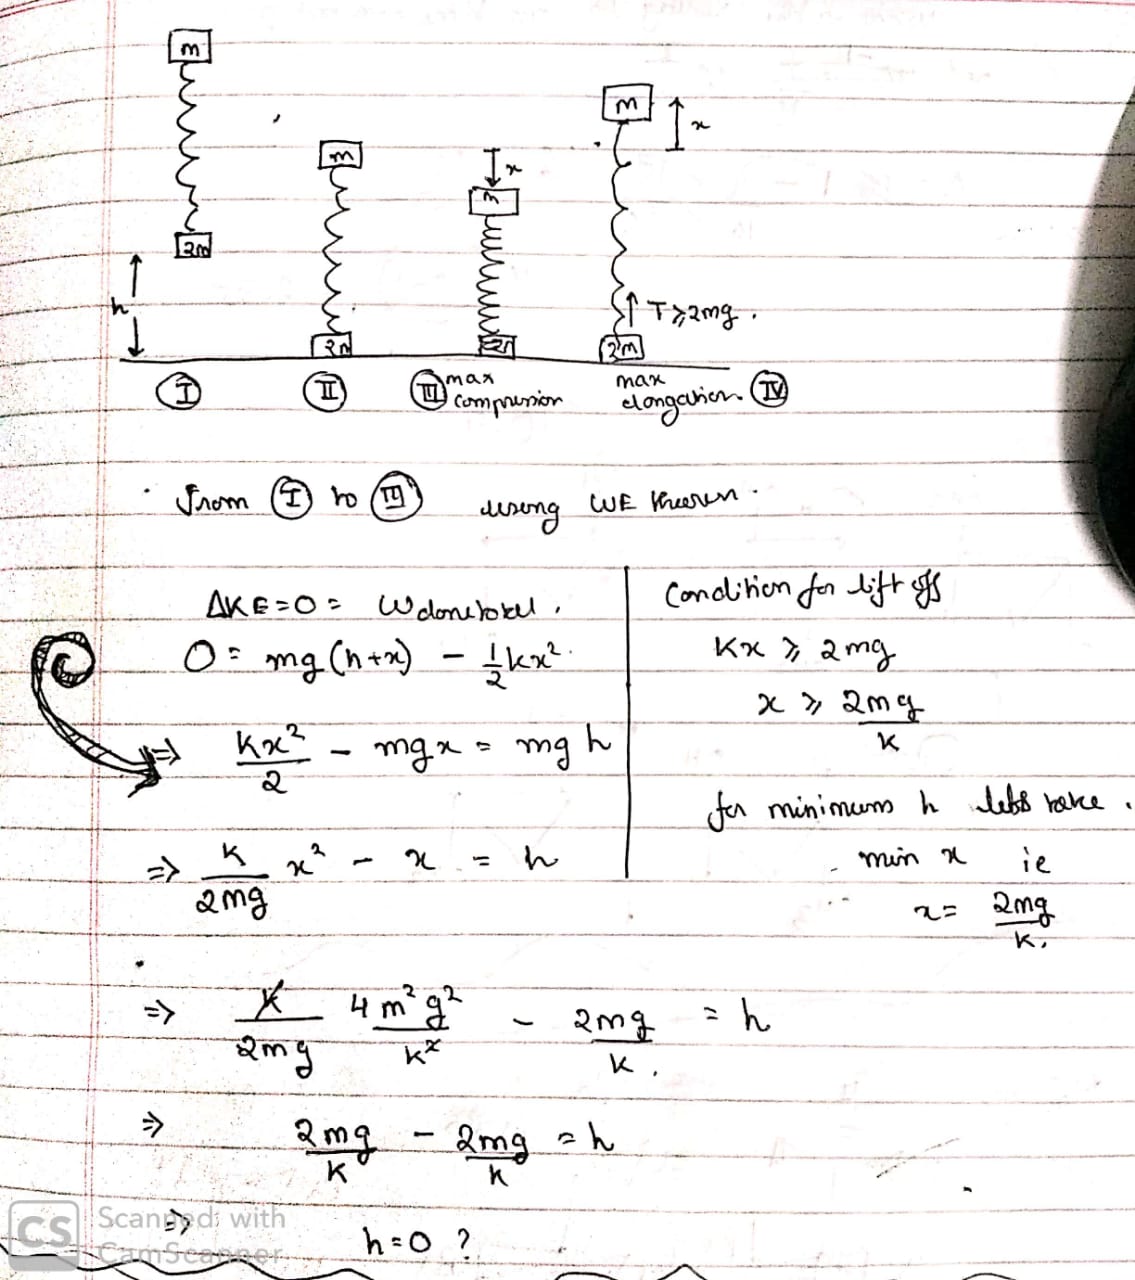 m
m
m
m
x
x
2m
h
T ⩾ 2mg.
2m
2m
2m
I
II
III max compression
max elongation. IV
From I to III using WE theorem.
ΔKE = 0 = Wdone total,
0 = mg(h+x) - 1/2 kx².
⇒ kx²/2 - mgx = mgh
⇒ k/2mg x² - x = h
Condition for lift off
Kx ⩾ 2mg
x ⩾ 2mg/K
for minimum h lets take.
min x ie
x = 2mg/K.
⇒ K/2mg 4m²g²/K² - 2mg/K. = h
⇒ 2mg/K - 2mg/K = h
⇒ h = 0 ?
CS Scanned with
CamScanner